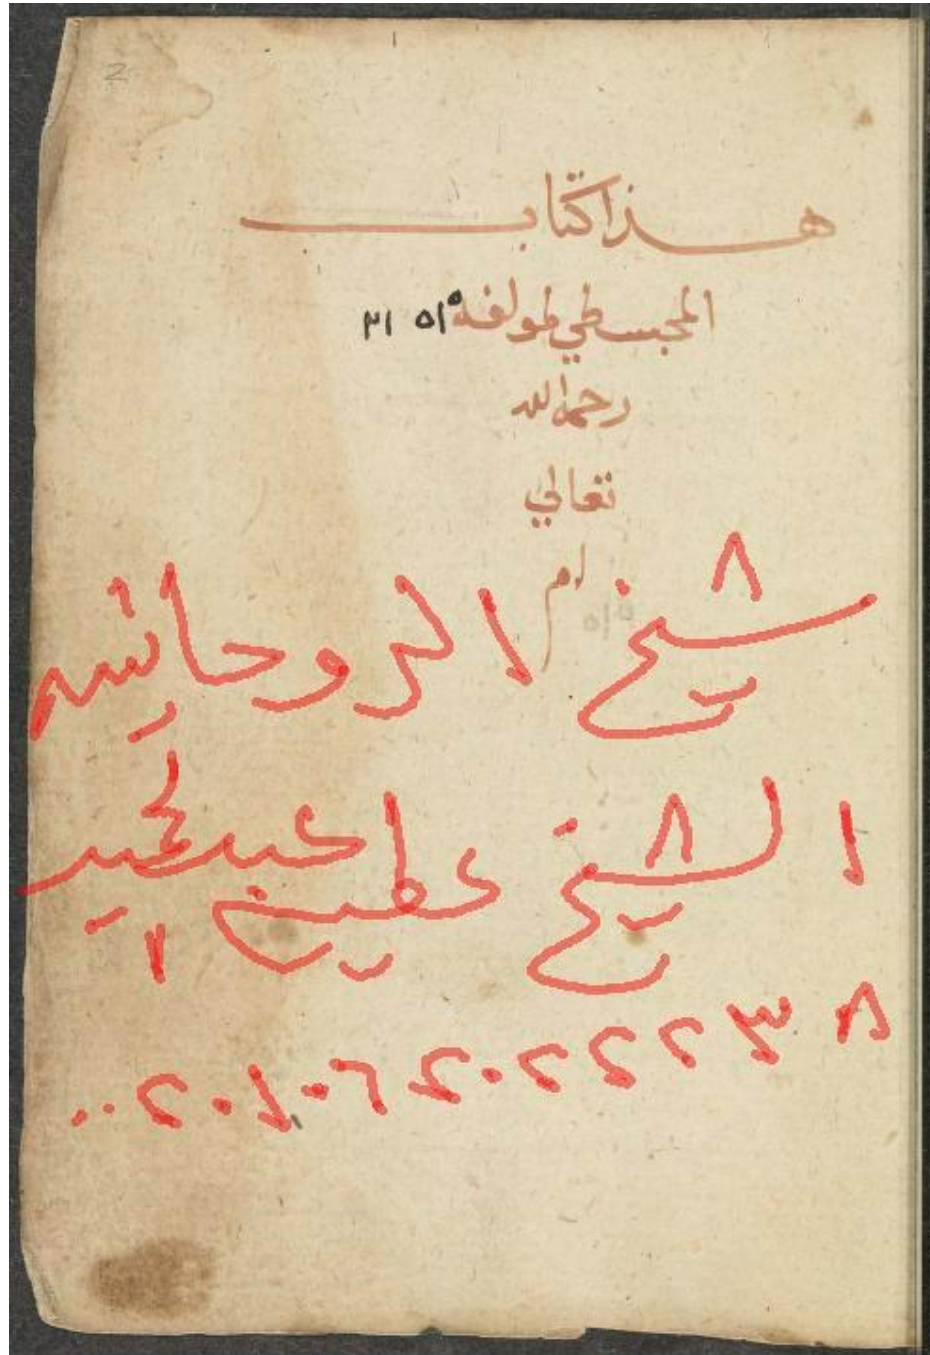 2
هذا كتاب
المجسطي لمولفه ٥١٥ ٣١
رحمه الله
تعالي
ام
شيخ الروحانيه
الشيخ عطيه عبد الحميد
٠٠٢٠١٠٦٢٠٢٢٢٣٨